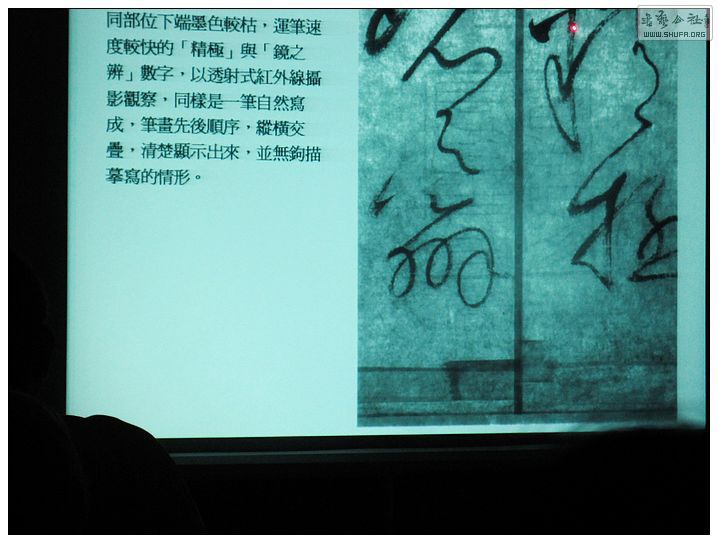 同部位下端墨色較枯，運筆速
度較快的「精極」與「鏡之
辨」數字，以透射式紅外線攝
影觀察，同樣是一筆自然寫
成，筆畫先後順序，縱橫交
疊，清楚顯示出來，並無鉤描
摹寫的情形。
精極
之辨
WWW.SHUFA.ORG